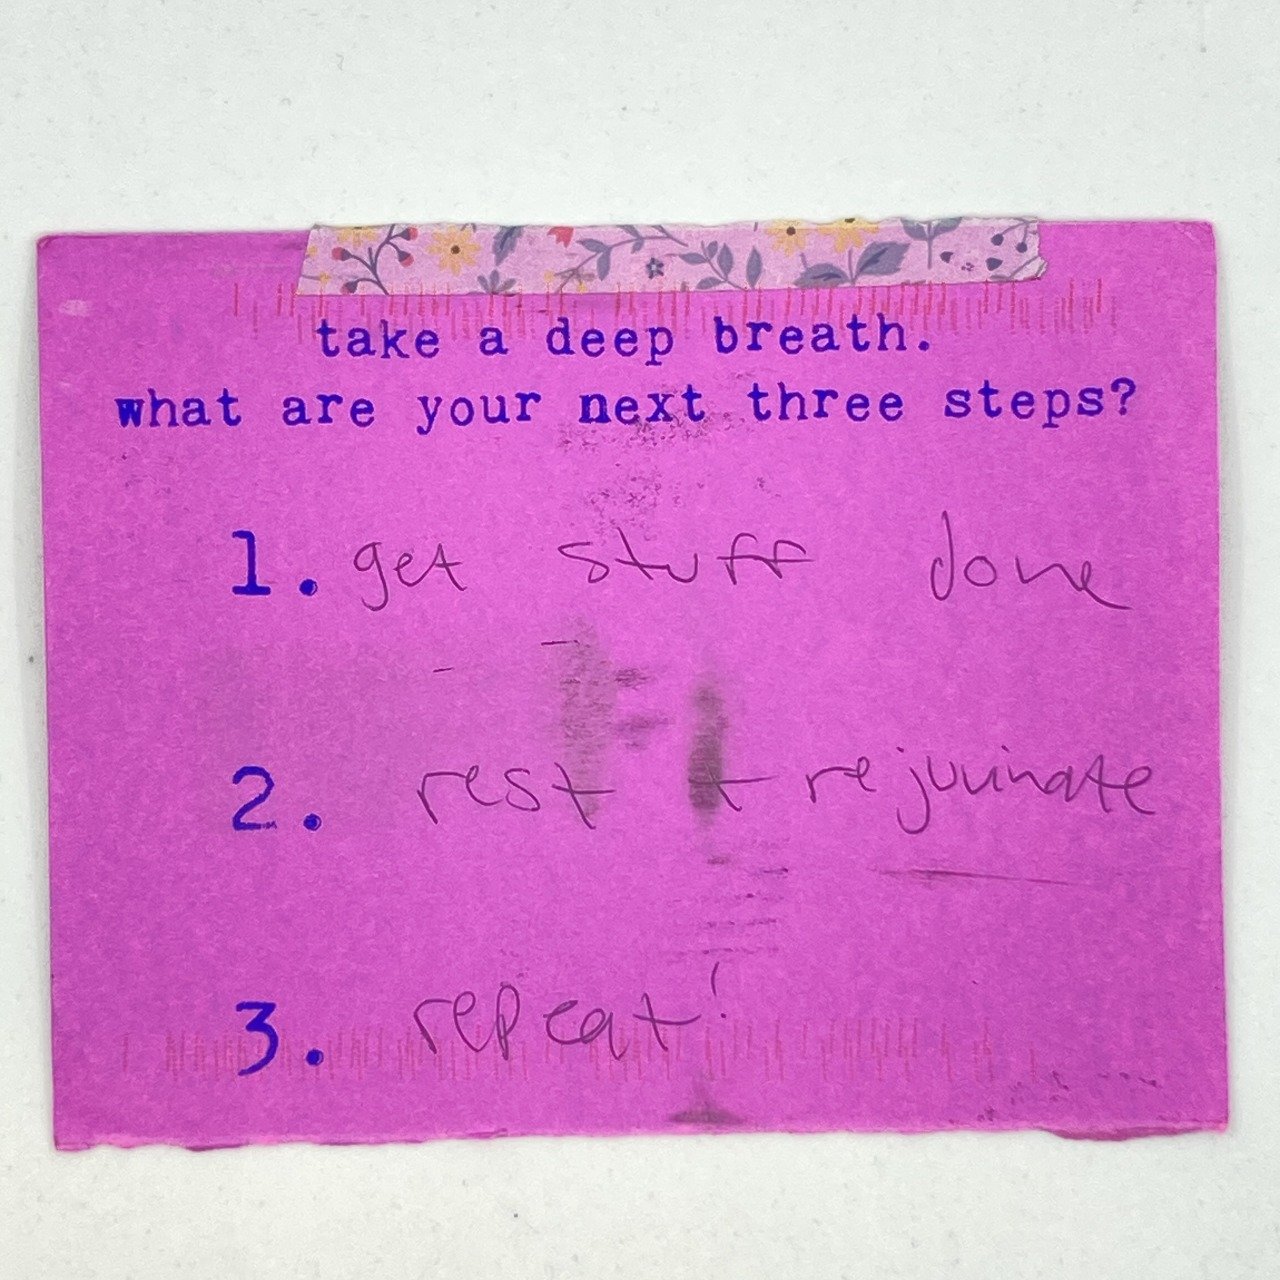 take a deep breath.
what are your next three steps?
1. get stuff done
2. rest + rejuvinate
3. repeat!